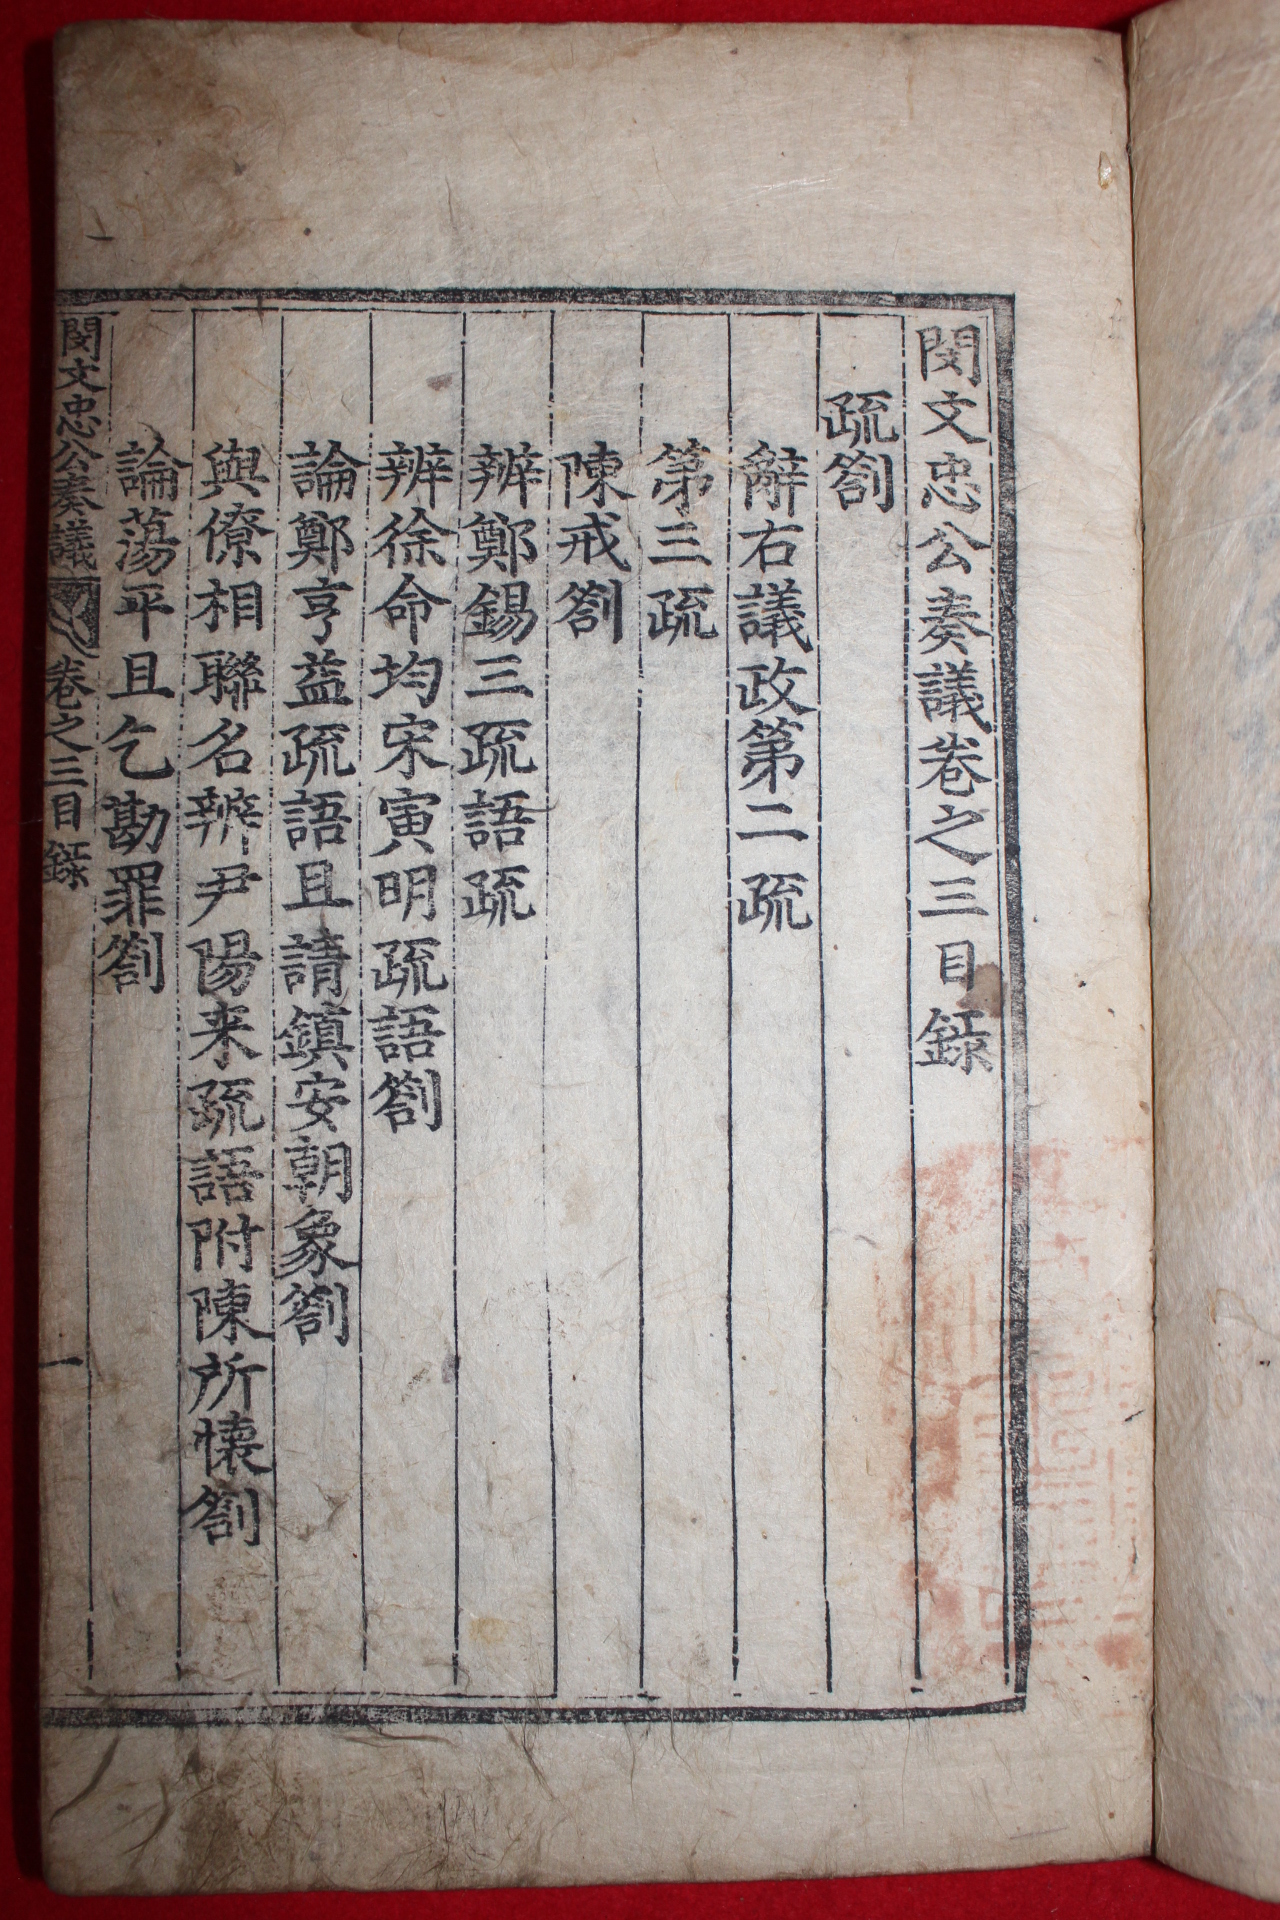 閔文忠公奏議卷之三目錄
疏劄
辭右議政第二疏
第三疏
陳戒劄
辨鄭錫三疏語疏
辨徐命均宋寅明疏語劄
論鄭亨益疏語且請鎭安朝象劄
與僚相聯名辨尹陽来疏語附陳所懷劄
論蕩平且乞勘罪劄
閔文忠公奏議 卷之三目錄 一